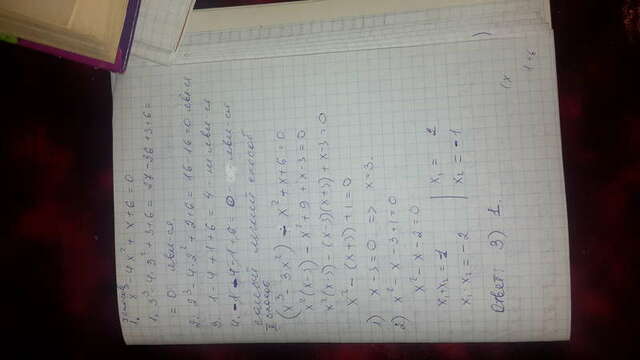 1. x³ - 4x² + x + 6 = 0
1. 3³ - 4·3² + 3 + 6 = 27 - 36 + 3 + 6 =
= 0 явл-ся
2. 2³ - 4·2² + 2 + 6 = 16 - 16 = 0 явл-ся
3. 1 - 4 + 1 + 6 = 4 не явл-ся
4. -1 - 4 - 1 + 6 = 0 - явл-ся
самый легкий способ
II способ
(x³ - 3x²) - x² + x + 6 = 0
x²(x-3) - x² + 9 + x - 3 = 0
x²(x-3) - (x-3)(x+3) + x - 3 = 0
x² - (x+3) + 1 = 0
1) x - 3 = 0 => x = 3.
2) x² - x - 3 + 1 = 0
x² - x - 2 = 0
x₁ + x₂ = 1 | x₁ = 2
x₁ · x₂ = -2 | x₂ = -1
Ответ: 3) 1.